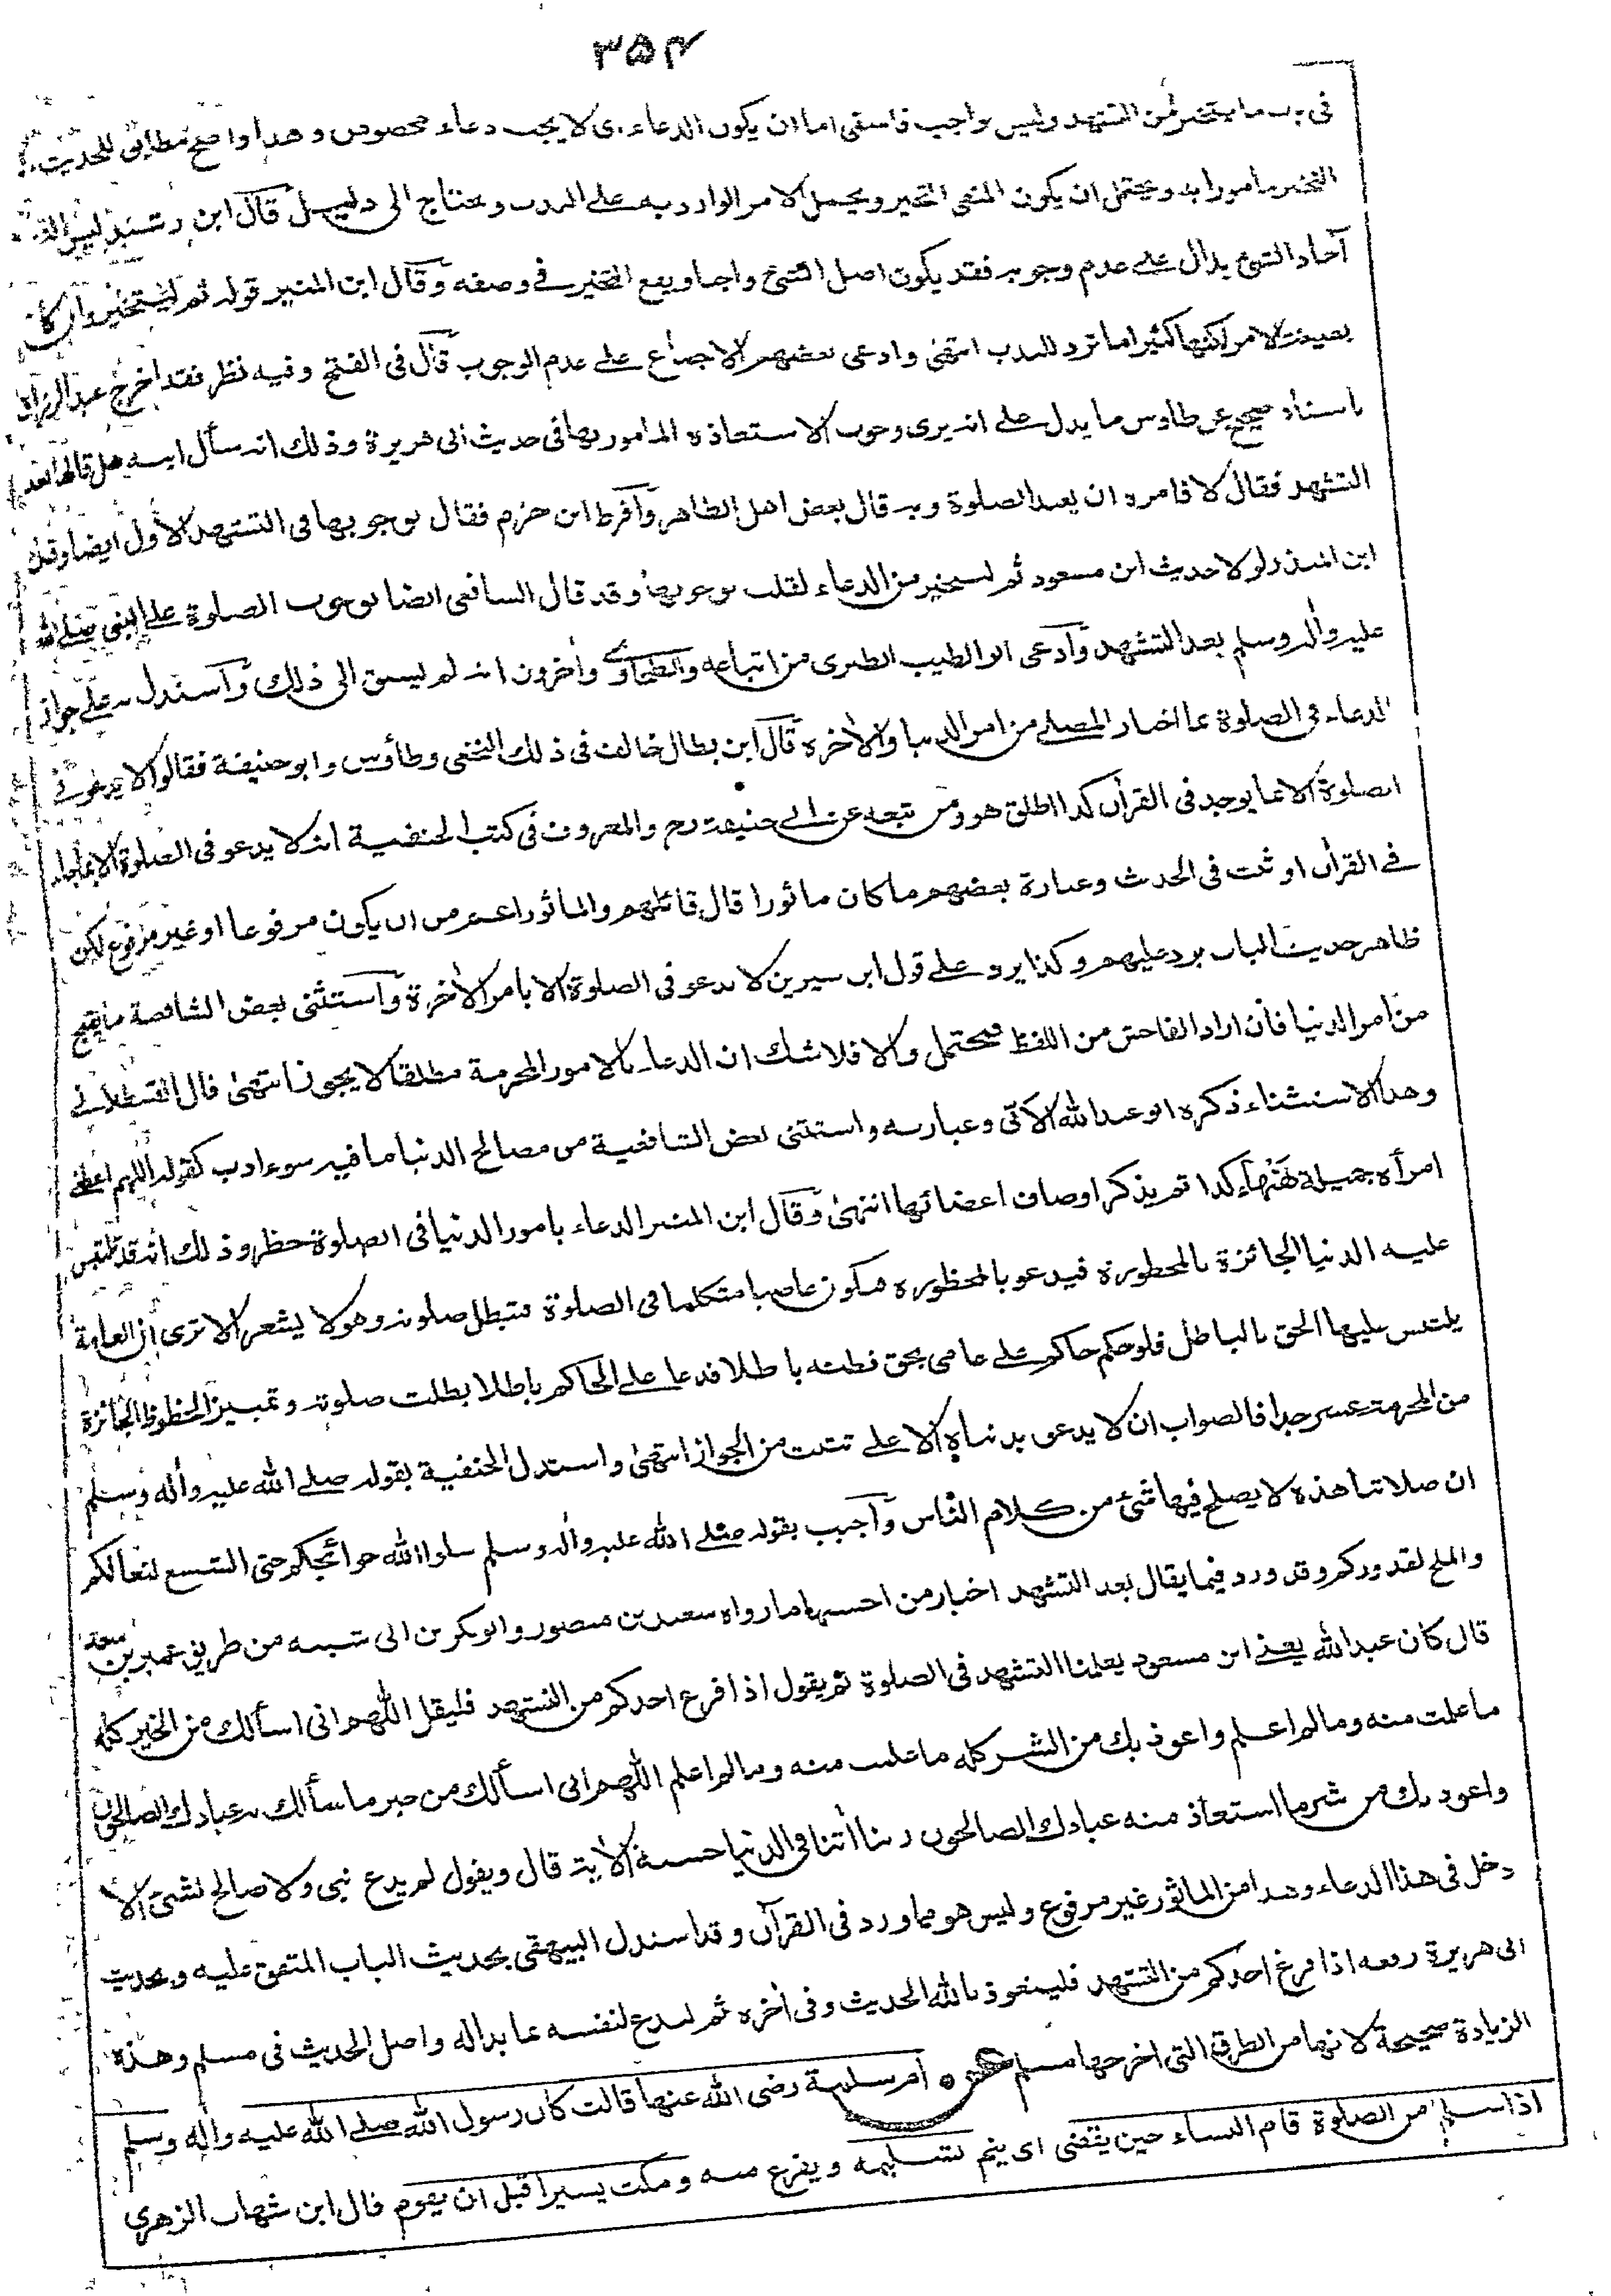 ٣٥٤
في باب ما يتخير من التشهد وليس بواجب فاستفى اما ان يكون الدعاء اى لا يجب دعاء مخصوص وهذا واضح مطابق للحديث
التخير مامورا به ويحتمل ان يكون المنفى التخير ويحمل الامر الوارد به على الندب ويحتاج الى دليل قال ابن رشيد ليس التخير فى
آحاد الشئ يدال على عدم وجوبه فقد يكون اصل الشئ واجبا ويقع التخير في وصفه وقال ابن المنير قوله ثم ليتخير وان كان
بصيغة الامر لكنها كثيرا ما ترد للندب انتهى وادعى بعضهم الاجماع على عدم الوجوب قال فى الفتح وفيه نظر فقد اخرج عبد الرزاق
باسناد صحيح عن طاوس ما يدل على انه يرى وجوب الاستعاذة المامور بها فى حديث ابى هريرة وذلك انه سأل ابنه هل قالها بعد
التشهد فقال لا فامره ان يعيد الصلوة وبه قال بعض اهل الظاهر وافرط ابن حزم فقال بوجوبها فى التشهد الاول ايضا وقال
ابن المنذر لولا حديث ابن مسعود ثم ليتخير من الدعاء لقلت بوجوبها وقد قال الشافعى ايضا بوجوب الصلوة على النبى صلى الله
عليه وآله وسلم بعد التشهد وادعى ابو الطيب الطبرى من اتباعه والطحاوى وآخرون انه لم يسبق الى ذلك واستدل به على جواز
الدعاء فى الصلوة بما اختار المصلى من امر الدنيا والآخرة قال ابن بطال خالف فى ذلك النخعى وطاؤس وابو حنيفة فقالوا لا يدعو فى
الصلوة الا بما يوجد فى القرآن كذا اطلق هو ومن تبعه عن ابى حنيفة رح والمعروف فى كتب الحنفية انه لا يدعو فى الصلوة الا بما جاء
فى القرآن او ثبت فى الحديث وعبارة بعضهم ما كان ماثورا قال قائلهم والماثور اعم من ان يكون مرفوعا او غير مرفوع لكن
ظاهر حديث الباب يرد عليهم وكذا يرد على قول ابن سيرين لا يدعو فى الصلوة الا بامر الآخرة واستثنى بعض الشافعية ما يقبح
من امر الدنيا فان اراد الفاحش من اللفظ فمحتمل والا فلا شك ان الدعاء بالامور المحرمة مطلقا لا يجوز انتهى قال القسطلانى
وهذا الاستثناء ذكره ابو عبد الله الآبى وعبارته واستثنى بعض الشافعية من مصالح الدنيا ما فيه سوء ادب كقوله اللهم اعطنى
امرأة جميلة هنها كذا ثم يذكر اوصاف اعضائها انتهى وقال ابن المنير الدعاء بامور الدنيا فى الصلوة خطر وذلك انه قد تلتبس
عليه الدنيا الجائزة بالمحظورة فيدعو بالمحظورة فيكون عاصيا متكلما فى الصلوة فتبطل صلوته وهو لا يشعر الا ترى ان العامة
يلتبس عليها الحق بالباطل فلو حكم حاكم على عامى بحق فظنه باطلا فدعا على الحاكم باطلا بطلت صلوته وتمييز الحظوظ الجائزة
من المحرمة عسر جدا فالصواب ان لا يدعى بدنياه الا على تثبت من الجواز انتهى واستدل الحنفية بقوله صلى الله عليه وآله وسلم
ان صلاتنا هذه لا يصلح فيها شئ من كلام الناس واجيب بقوله صلى الله عليه وآله وسلم سلوا الله حوائجكم حتى الشسع لنعالكم
والملح لقدوركم وقد ورد فيما يقال بعد التشهد اخبار من احسنها ما رواه سعيد بن منصور وابو بكر بن ابى شيبة من طريق عمير بن سعد
قال كان عبد الله يعنى ابن مسعود يعلمنا التشهد فى الصلوة ثم يقول اذا فرغ احدكم من التشهد فليقل اللهم انى اسألك من الخير كله
ما علمت منه وما لم اعلم واعوذ بك من الشر كله ما علمت منه وما لم اعلم اللهم انى اسألك من خير ما سألك به عبادك الصالحون
واعوذ بك من شر ما استعاذ منه عبادك الصالحون ربنا آتنا فى الدنيا حسنة الآية قال ويقول لم يدع نبى ولا صالح بشئ الا
دخل فى هذا الدعاء وهذا من الماثور غير مرفوع وليس هو مما ورد فى القرآن وقد استدل البيهقى بحديث الباب المتفق عليه وبحديث
ابى هريرة رفعه اذا فرغ احدكم من التشهد فليتعوذ بالله الحديث وفى آخره ثم ليدع لنفسه بما بدا له واصل الحديث فى مسلم وهذه
الزيادة صحيحة لانها من الطرق التى اخرجها مسلم عن ام سلمة رضى الله عنها قالت كان رسول الله صلى الله عليه وآله وسلم
اذا سلم من الصلوة قام النساء حين يقضى اى يتم تسليمه ويفرغ منه ومكث يسيرا قبل ان يقوم قال ابن شهاب الزهرى